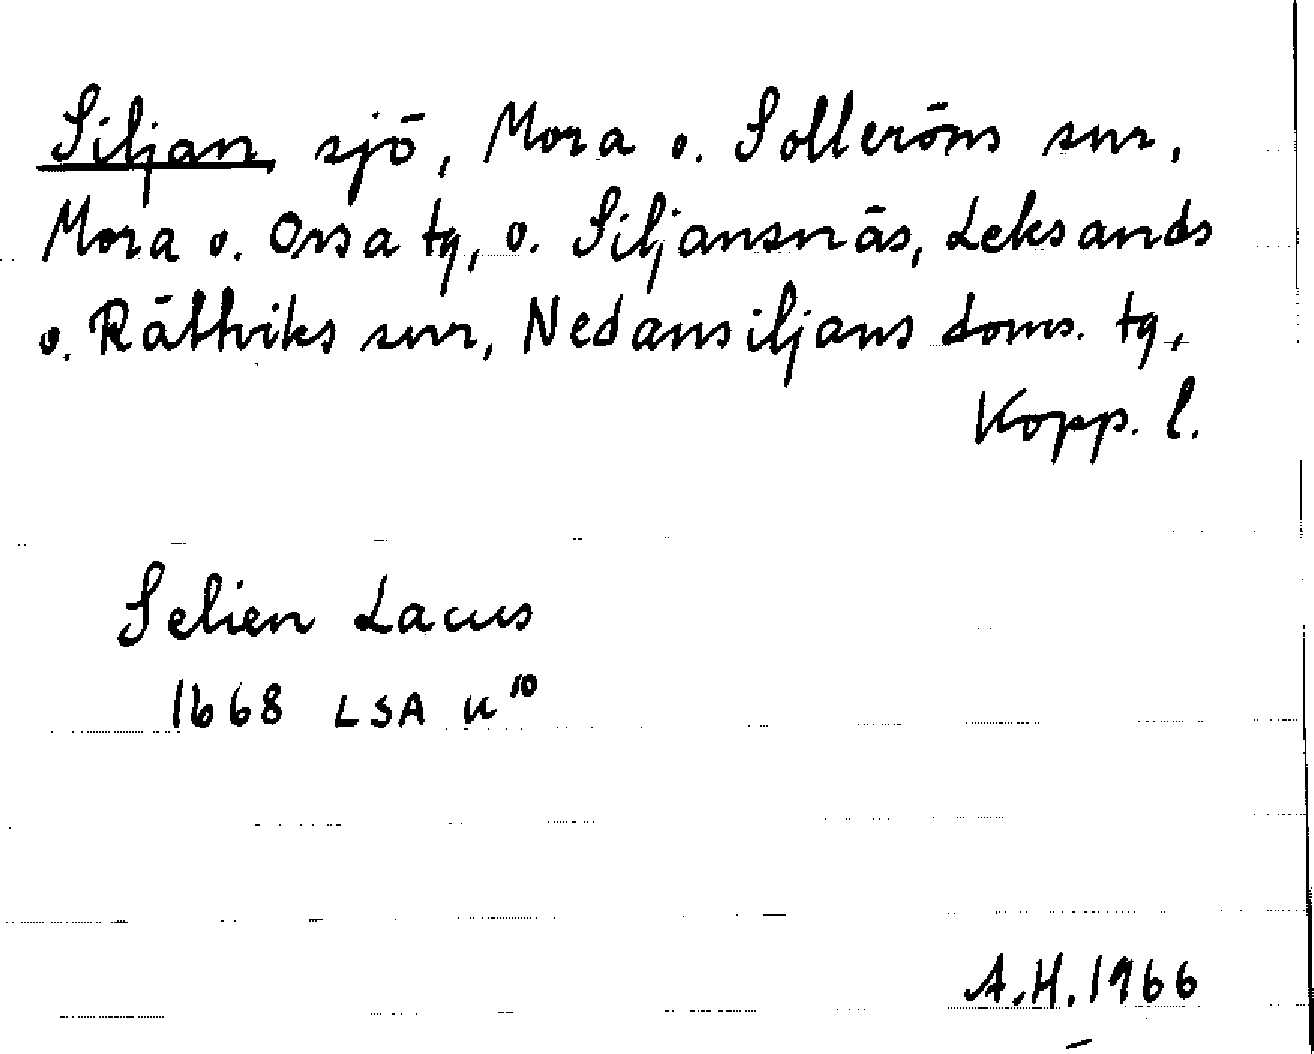 Siljan sjö, Mora o. Solleröns snr,
Mora o. Orsa tg, o. Siljansnäs, Leksands
o. Rättviks snr, Nedansiljans doms. tg,
Kopp. l.
Selien Lacus
1668 LSA K 10
A.H. 1966